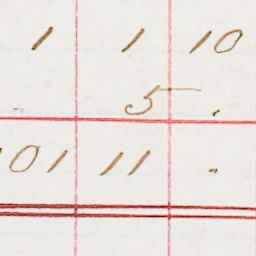 1 1 10
. 5 .
01 11 .